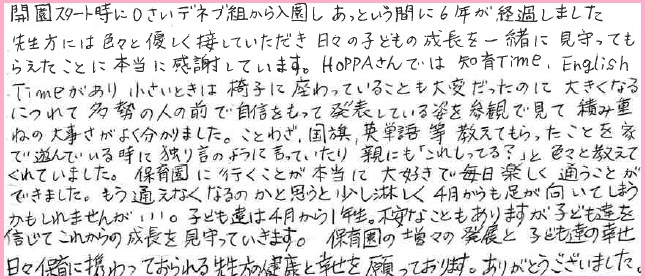 開園スタート時に0さいデネブ組から入園し あっという間に6年が経過しました
先生方には色々と優しく接していただき 日々の子どもの成長を一緒に見守っても
らえたことに本当に感謝しています。HOPPAさんでは 知育Time、English
Timeがあり 小さいときは 椅子に座わっていることも大変だったのに 大きくなる
につれて 多勢の人の前で自信をもって 発表している姿を参観で見て 積み重
ねの大事さがよく分かりました。ことわざ、国旗、英単語等 教えてもらったことを家
で遊んでいる時に独り言のように言っていたり 親にも「これしってる?」と色々と教えて
くれていました。保育園に行くことが本当に大好きで毎日楽しく通うことが
できました。もう通えなくなるのかと思うと少し淋しく 4月からも足が向いてしまう
かもしれませんが…。子ども達は4月から1年生。不安なこともありますが子ども達を
信じてこれからの成長を見守っていきます。 保育園の増々の発展と 子ども達の幸せ
日々保育に携わっておられる先生方の健康と幸せを願っております。ありがとうございました。